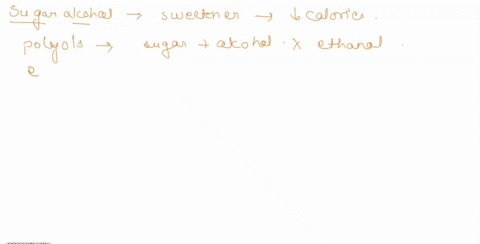 Sugar alcohol → sweetner → ↓ calories.
polyols → sugar + alcohol. X ethanol.
e